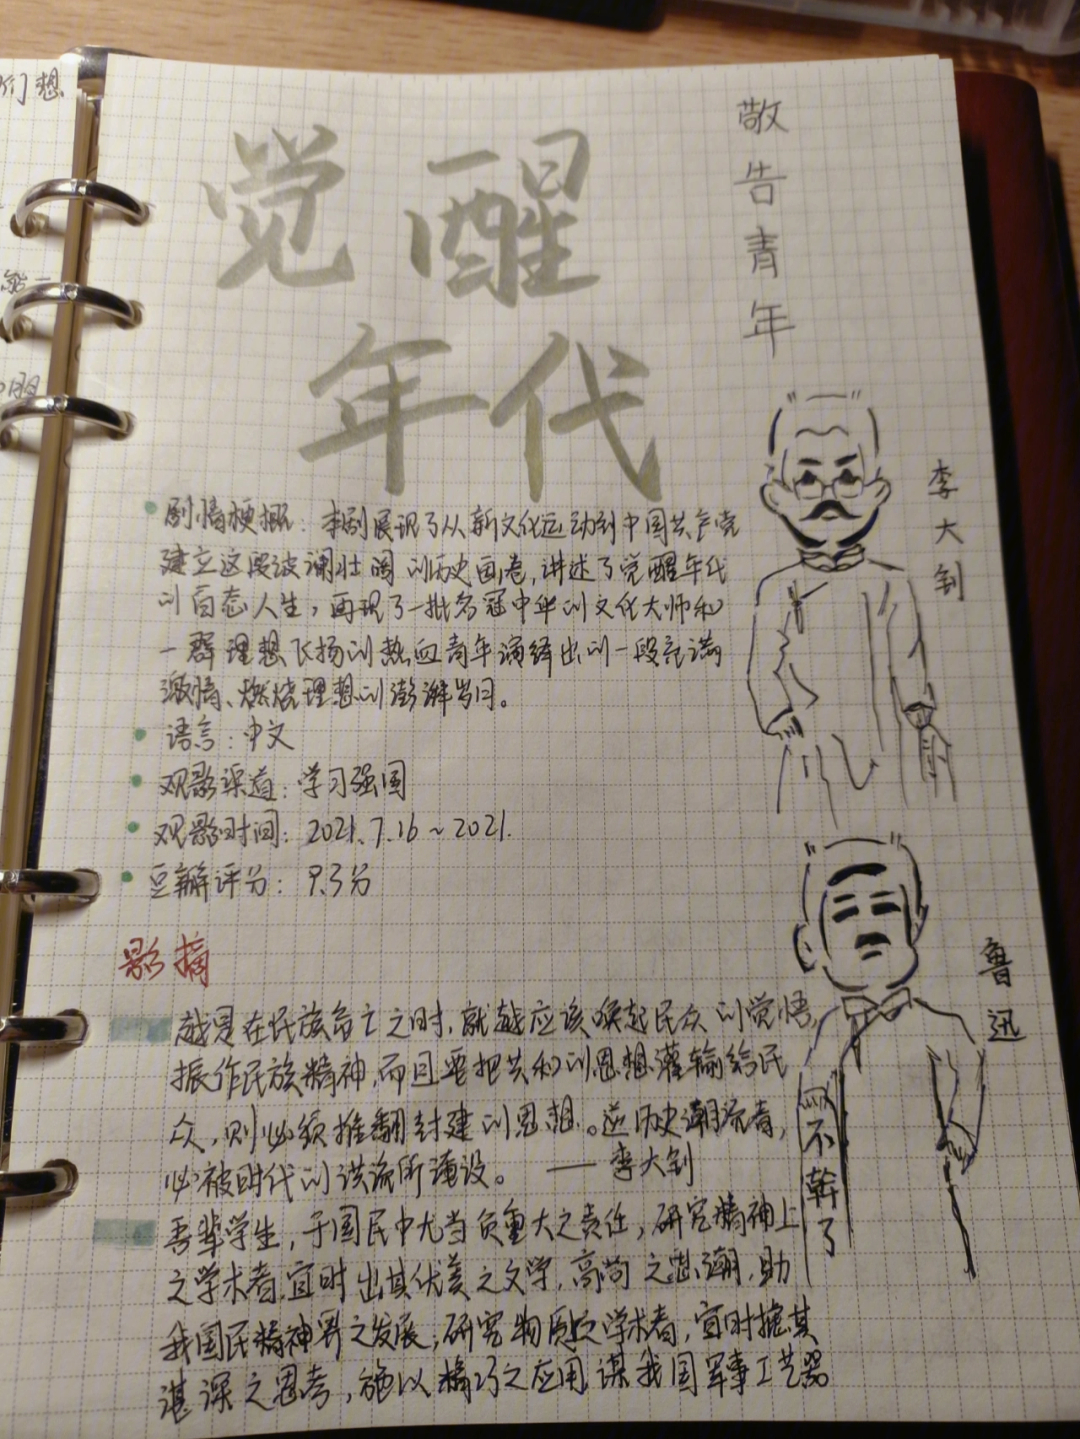 们想
觉醒
年代
敬告青年
李大钊
剧情梗概：本剧展现了从新文化运动到中国共产党
建立这段波澜壮阔的历史画卷，讲述了觉醒年代
的百态人生，再现了一批名冠中华的文化大师和
一群理想飞扬的热血青年演绎出的一段充满
激情、燃烧理想的澎湃岁月。
语言：中文
观影渠道：学习强国
观影时间：2021.7.16~2021.
豆瓣评分：9.3分
鲁迅
不幹了
影摘
越是在民族危亡之时，就越应该唤起民众的觉悟，
振作民族精神，而且要把共和的思想灌输给民
众，则必须推翻封建的思想。逆历史潮流者，
必被时代的洪流所淹没。——李大钊
吾辈学生，于国民中尤当负重大之责任，研究精神上
之学术者，宜时出其优美之文学，高尚之思潮，助
我国民精神界之发展，研究物质之学术者，宜时摅其
湛深之思考，施以精巧之应用，谋我国军事工艺器